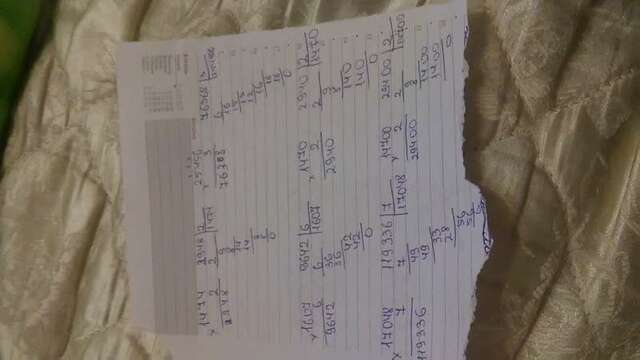 × 1474 2948 | 2 × 25456 76368 | 3
2 2 1474 3 6 25456
2948 9 76368 16
8 15
14 13
14 12
8 16
8 15
0 18
18
0
× 1607 9642 | 6 × 1470 2940 | 2
6 6 1607 2 2 1470
9642 36 2940 9
36 8
42 140
42 140
0 0
× 17048 119336 | 7 × 14700 29400 | 2
7 7 17048 2 2 14700
119336 49 29400 9
49 8
33 1400
28 1400
56 0
56
0